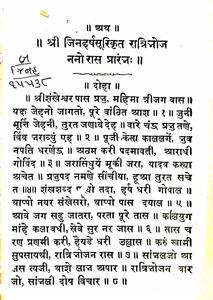 ॥ अथ ॥
॥ श्री जिनहर्षसूरिकृत रात्रिभोज
ननो रास प्रारंभः ॥
॥ दोहा ॥
॥ श्रीशंखेश्वर पास प्रभु, महिमा त्रीजग वास
यक्ष जेहनो जागतो, पूरे वांछित आश ॥ १ ॥ जुनी
मूर्त्ति जेहनी, तुरत जणावे देह ॥ वारे चंद्र प्रभु तणे,
बिंब जराव्युं एह ॥ २ ॥ पूजी केता काललगें, भुव
नपति धरणेंद्र ॥ अठम करी पदमावती, आराधी
गोविंद ॥ ३ ॥ जरासिंधुयें मूकी जरा, यादव कस्या
अचेत ॥ प्रभुपद नमणे सींचीया, हूआ तुरत सचे
त ॥ ४ ॥ शंखशब्द तदा, हर्ष धरी गोपाल ॥
थाप्यो नयर संखेसरो, थाप्यो पास दयाल ॥ ५ ॥
आवे जग सहु जातरा, परता पूरे तास ॥ कलियुग
महिं कलावधी, सेवे सुर नर जास ॥ ६ ॥ तास च
रण प्रणमी करी, हैयडे धरी उल्लास ॥ करुं
सुपसायथी, रात्रिभोजन रास ॥ ७ ॥ सांभलजो आ
लस त्यजी, थाशे लाभ अपार ॥ रात्रिभोजन वार
जो, सांभली दोष विचार ॥ ८ ॥